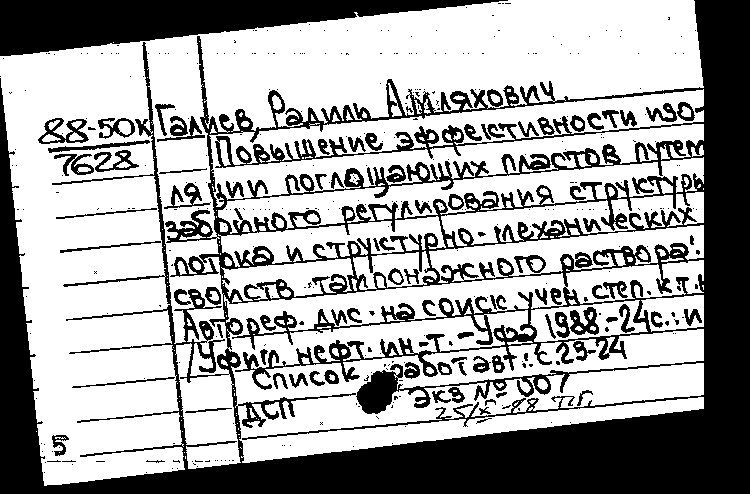 88-50к
7628
Галиев, Радиль Амляхович.
Повышение эффективности изо-
ляции поглощающих пластов путем
забойного регулирования структуры
потока и структурно-механических
свойств тампонажного раствора:
Автореф. дис. на соиск. учен. степ. к.т.н
/Уфим. нефт. ин.-т. - Уфа 1988.-24с.: и
Список работ авт.: с.23-24
ДСП экз № 007
25/X-88
5